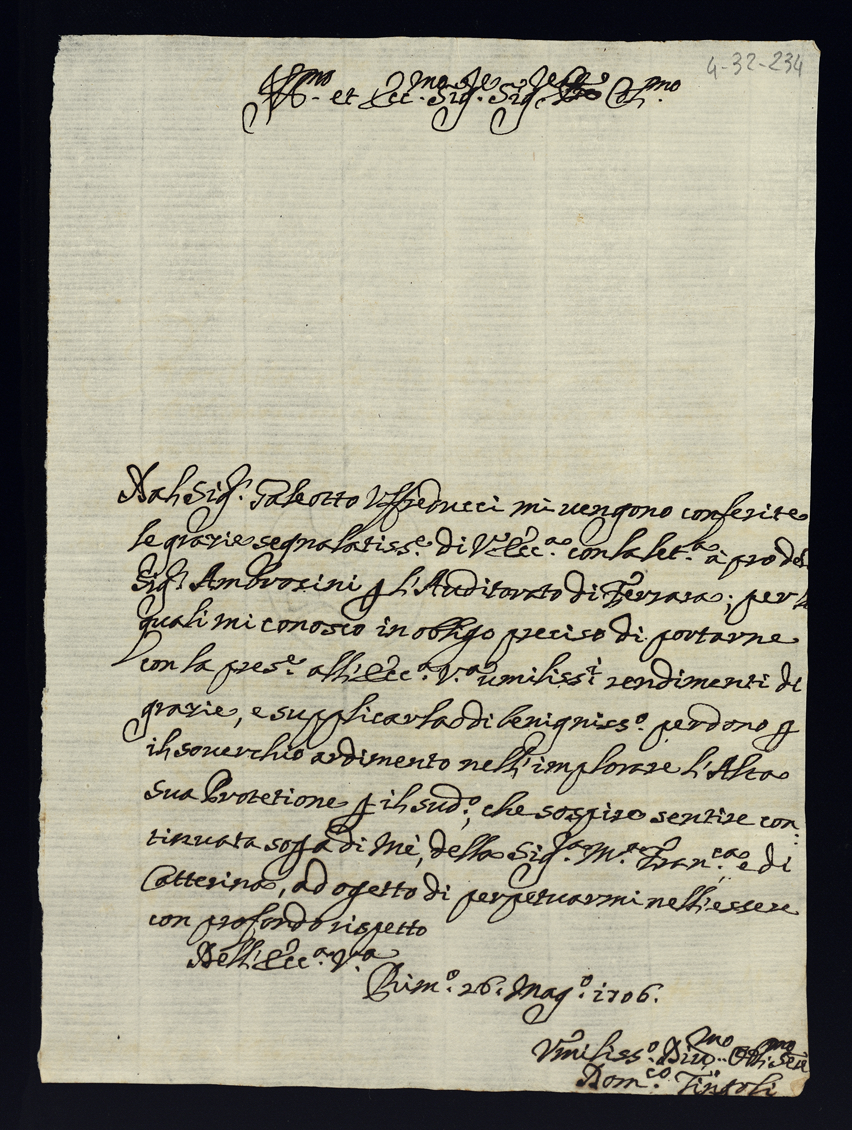 4-32-234
Ill.mo et Ecc.mo Sig.re Sig.re P.ne Col.mo
Dal Sig.r Galeotto Uffreducci mi vengono conferite
le grazie segnalatiss.e di V.ra Ecc.a con la let.a à pro del
Sig.r Ambrosini p l'Auditorato di Ferrara; per le
quali mi conosco in obligo preciso di portarne
con la pres.e all'Ecc.a V.a umiliss.i rendimenti di
grazie, e supplicarla di benigniss.o perdono p
il soverchio ardimento nell'implorare l'Alta
sua Protetione p il sud.o, che sospiro sentire con:
tinuata sop.a di Me, della Sig.a M.a Fran.ca, e di
Catterina, ad ogetto di perpetuarmi nell'essere
con profondo rispetto
Dell'Ecc.a V.a
Rim.o 26. Mag.o 1706.
Umiliss.o Div.mo Obl.mo Ser.e
Dom.co Tintoli